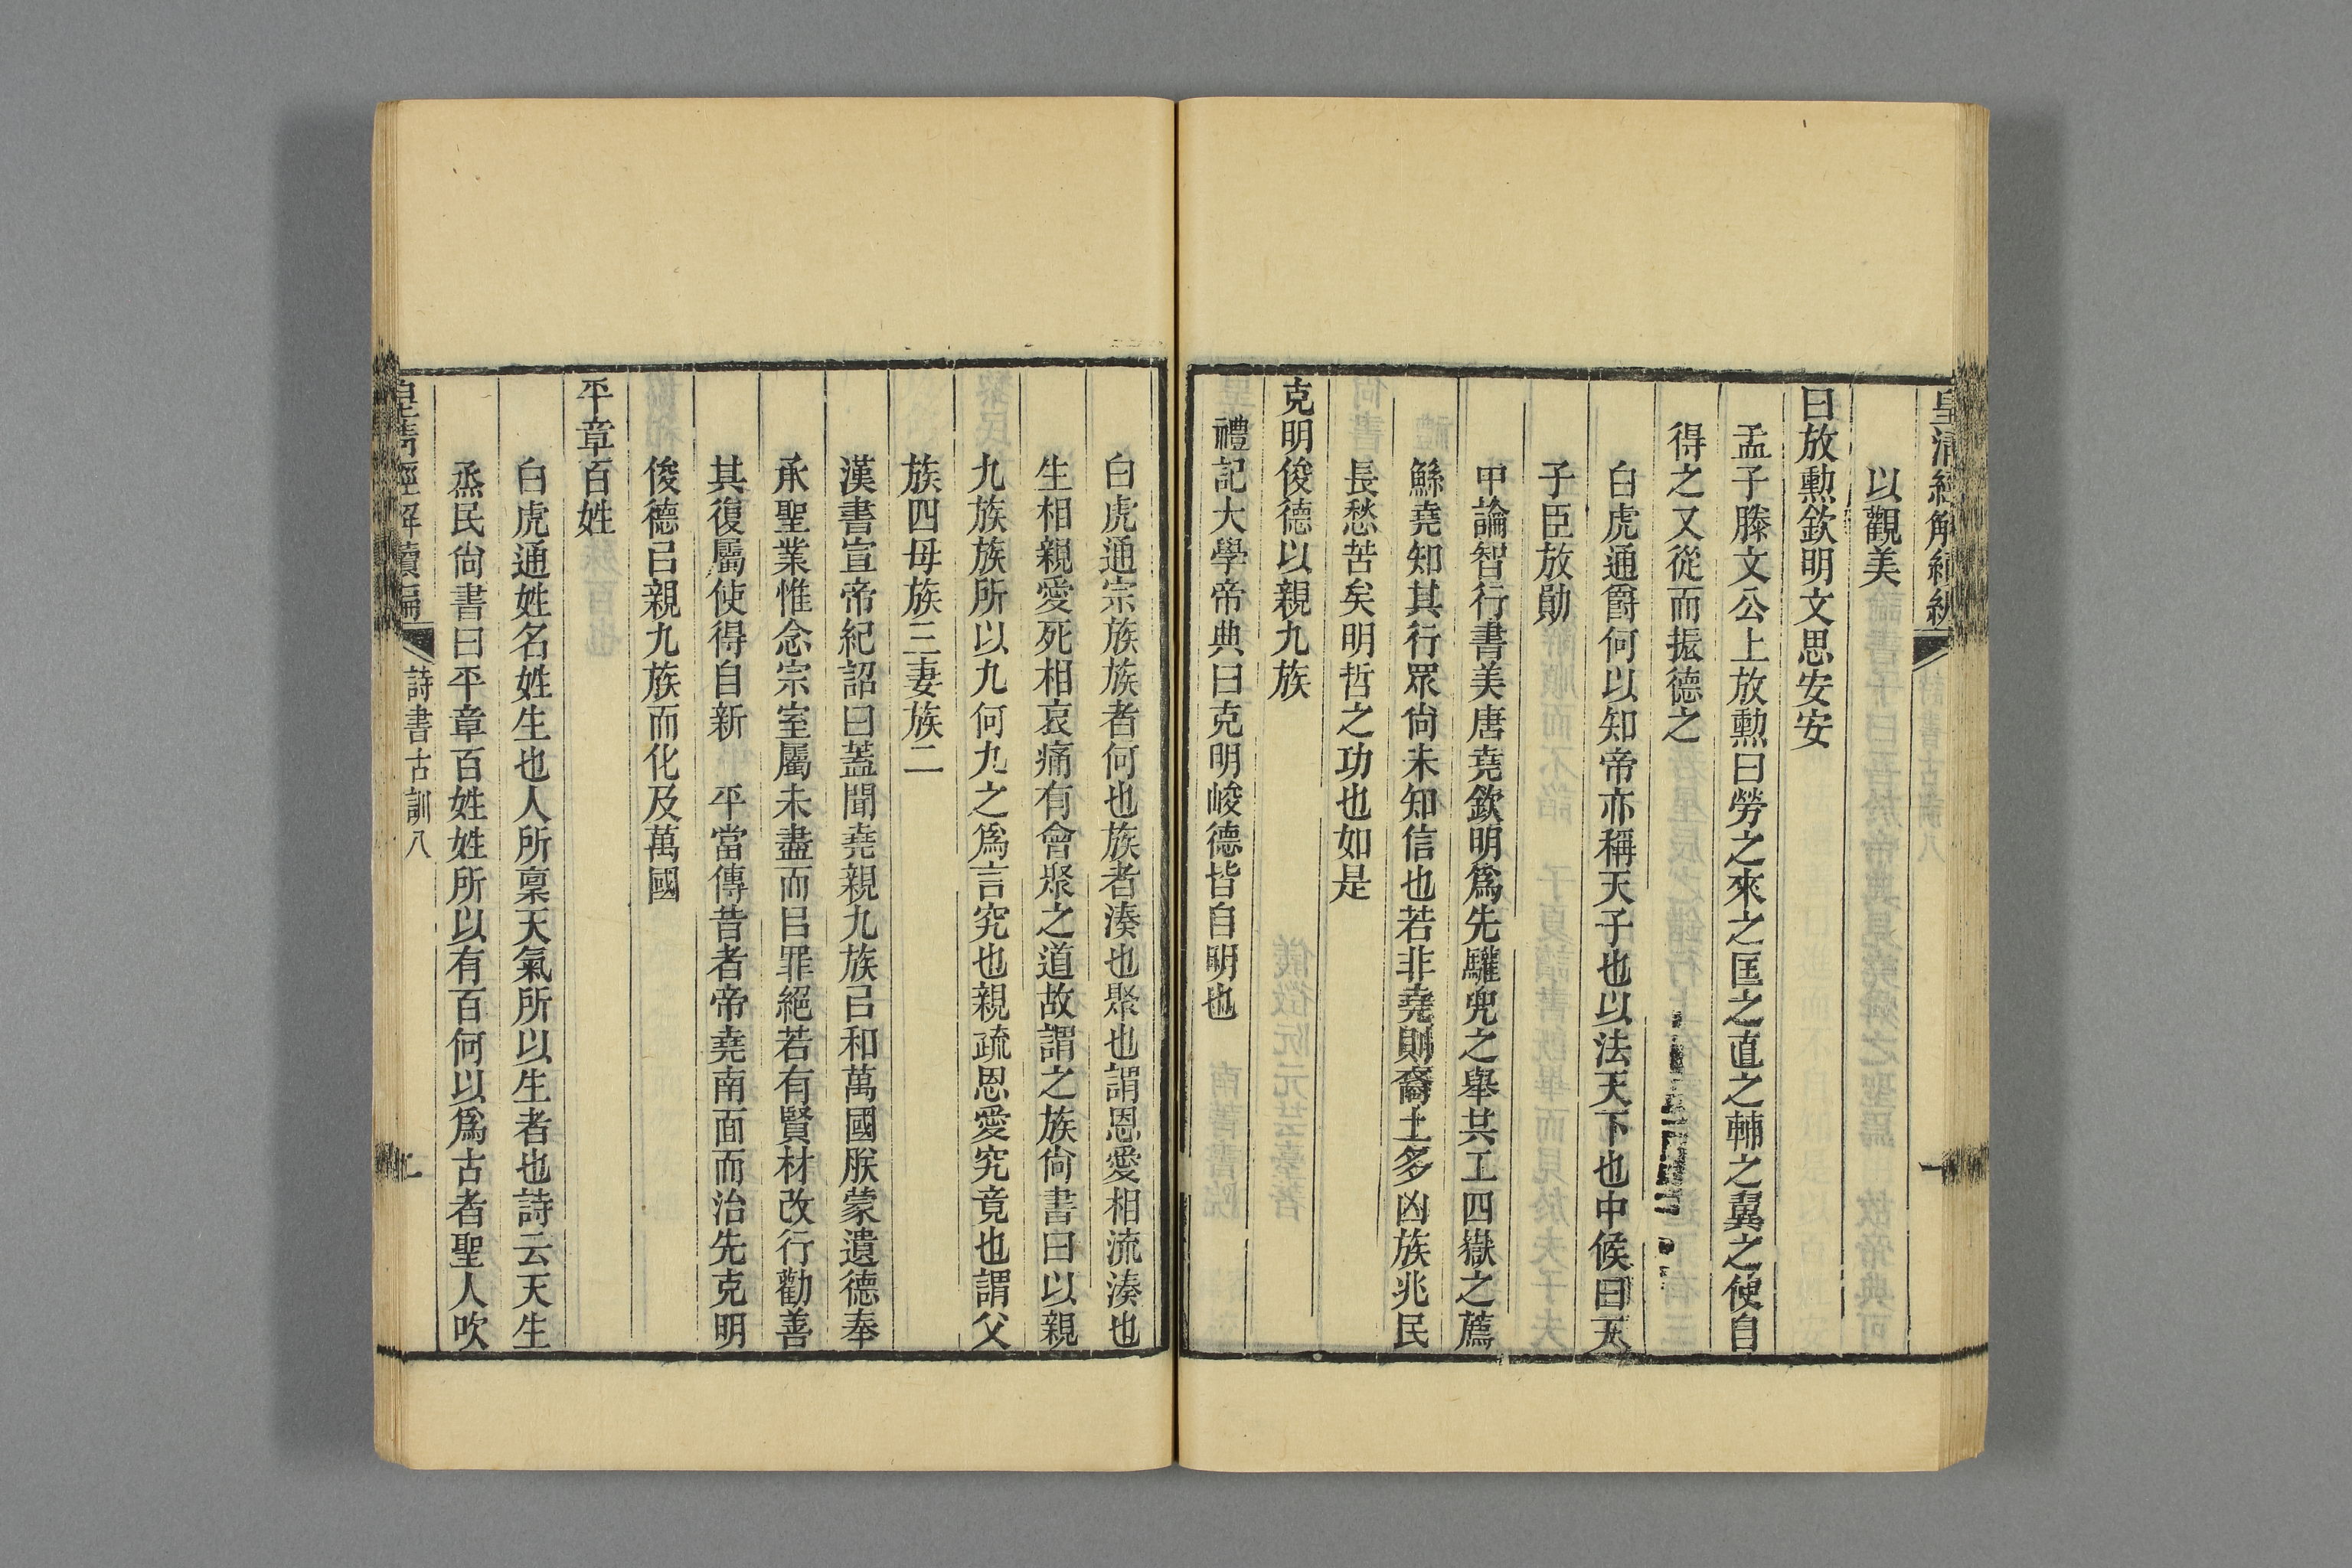 皇清經解續編
一
以觀美
曰放勲欽明文思安安
孟子滕文公上放勲曰勞之來之匡之直之輔之翼之使自
得之又從而振德之
白虎通爵何以知帝亦稱天子也以法天下也中候曰天
子臣放勛
中論智行書美唐堯欽明爲先驩兜之舉共工四嶽之薦
鯀堯知其行眾尙未知信也若非堯則裔土多凶族兆民
長愁苦矣明哲之功也如是
克明俊德以親九族
禮記大學帝典曰克明峻德皆自明也
白虎通宗族族者何也族者湊也聚也謂恩愛相流湊也
生相親愛死相哀痛有會聚之道故謂之族尙書曰以親
九族族所以九何九之爲言究也親疏恩愛究竟也謂父
族四母族三妻族二
漢書宣帝紀詔曰蓋聞堯親九族㠯和萬國朕蒙遺德奉
承聖業惟念宗室屬未盡而㠯罪絕若有賢材改行勸善
其復屬使得自新　平當傳昔者帝堯南面而治先克明
俊德㠯親九族而化及萬國
平章百姓
白虎通姓名姓生也人所稟天氣所以生者也詩云天生
烝民尙書曰平章百姓姓所以有百何以爲古者聖人吹
皇淸經解續編
詩書古訓八